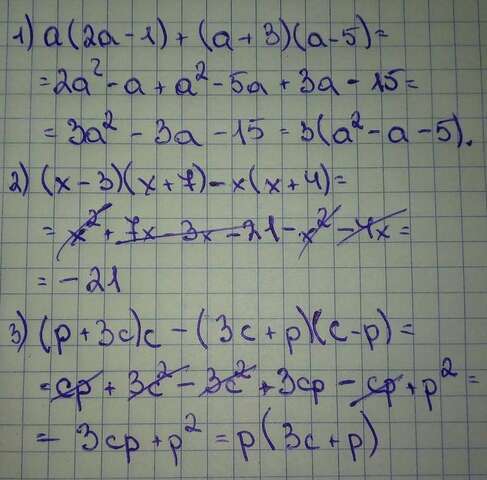 1) a(2a-1)+(a+3)(a-5)=
=2a²-a+a²-5a+3a-15=
=3a²-3a-15=3(a²-a-5).
2) (x-3)(x+7)-x(x+4)=
=x²+7x-3x-21-x²-4x=
=-21
3) (p+3c)c-(3c+p)(c-p)=
=cp+3c²-3c²+3cp-cp+p²=
=3cp+p²=p(3c+p)